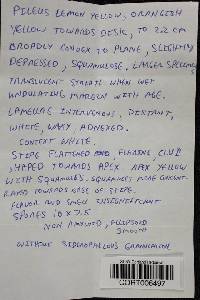 PILEUS LEMON YELLOW, ORANGISH
YELLOW TOWARDS DISK, TO 2.2 CM
BROADLY CONVEX TO PLANE, SLIGHTLY
DEPRESSED, SQUAMULOSE, LARGER SPECIMENS
TRANSLUCENT STRIATE WHEN WET
UNDULATING MARGIN WITH AGE.
LAMELLAE INTERVENOUS, DISTANT,
WHITE, WAXY, ADNEXED.
CONTEXT WHITE.
STIPE FLATTENED FLEXING, CLUB
SHAPED TOWARDS APEX APEX YELLOW
WITH SQUAMULES. SQUAMULES MORE CONCENT-
RATED TOWARDS BASE OF STIPE.
FLAVOR AND SMELL INSIGNIFICANT
SPORES 10 X 7.5
NON AMYLOID, ELIPSOID
SMOOTH
WITHOUT SIDEROPHILOUS GRANULATION
CORT006497